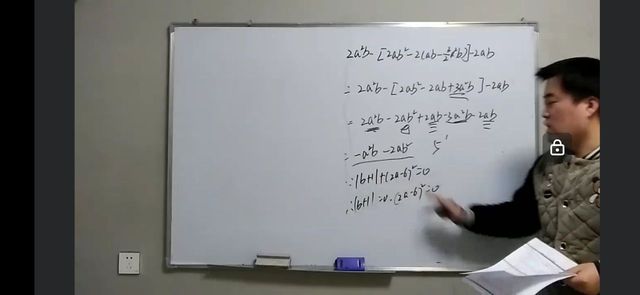 2a²b-[2ab²-2(ab-3/2a²b)]-2ab
=2a²b-[2ab²-2ab+3a²b]-2ab
=2a²b-2ab²+2ab-3a²b-2ab
=-a²b-2ab² 5'
∵|b+1|+(2a-6)²=0
∴|b+1|=0.(2a-6)²=0